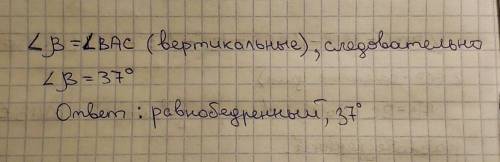 ∠β = ∠BAC (вертикальные), следовательно
∠β = 37°
Ответ : равнобедренный, 37°